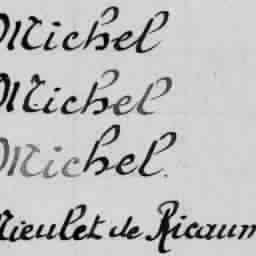 Michel
Michel
Michel.
Nieulet de Ricaum